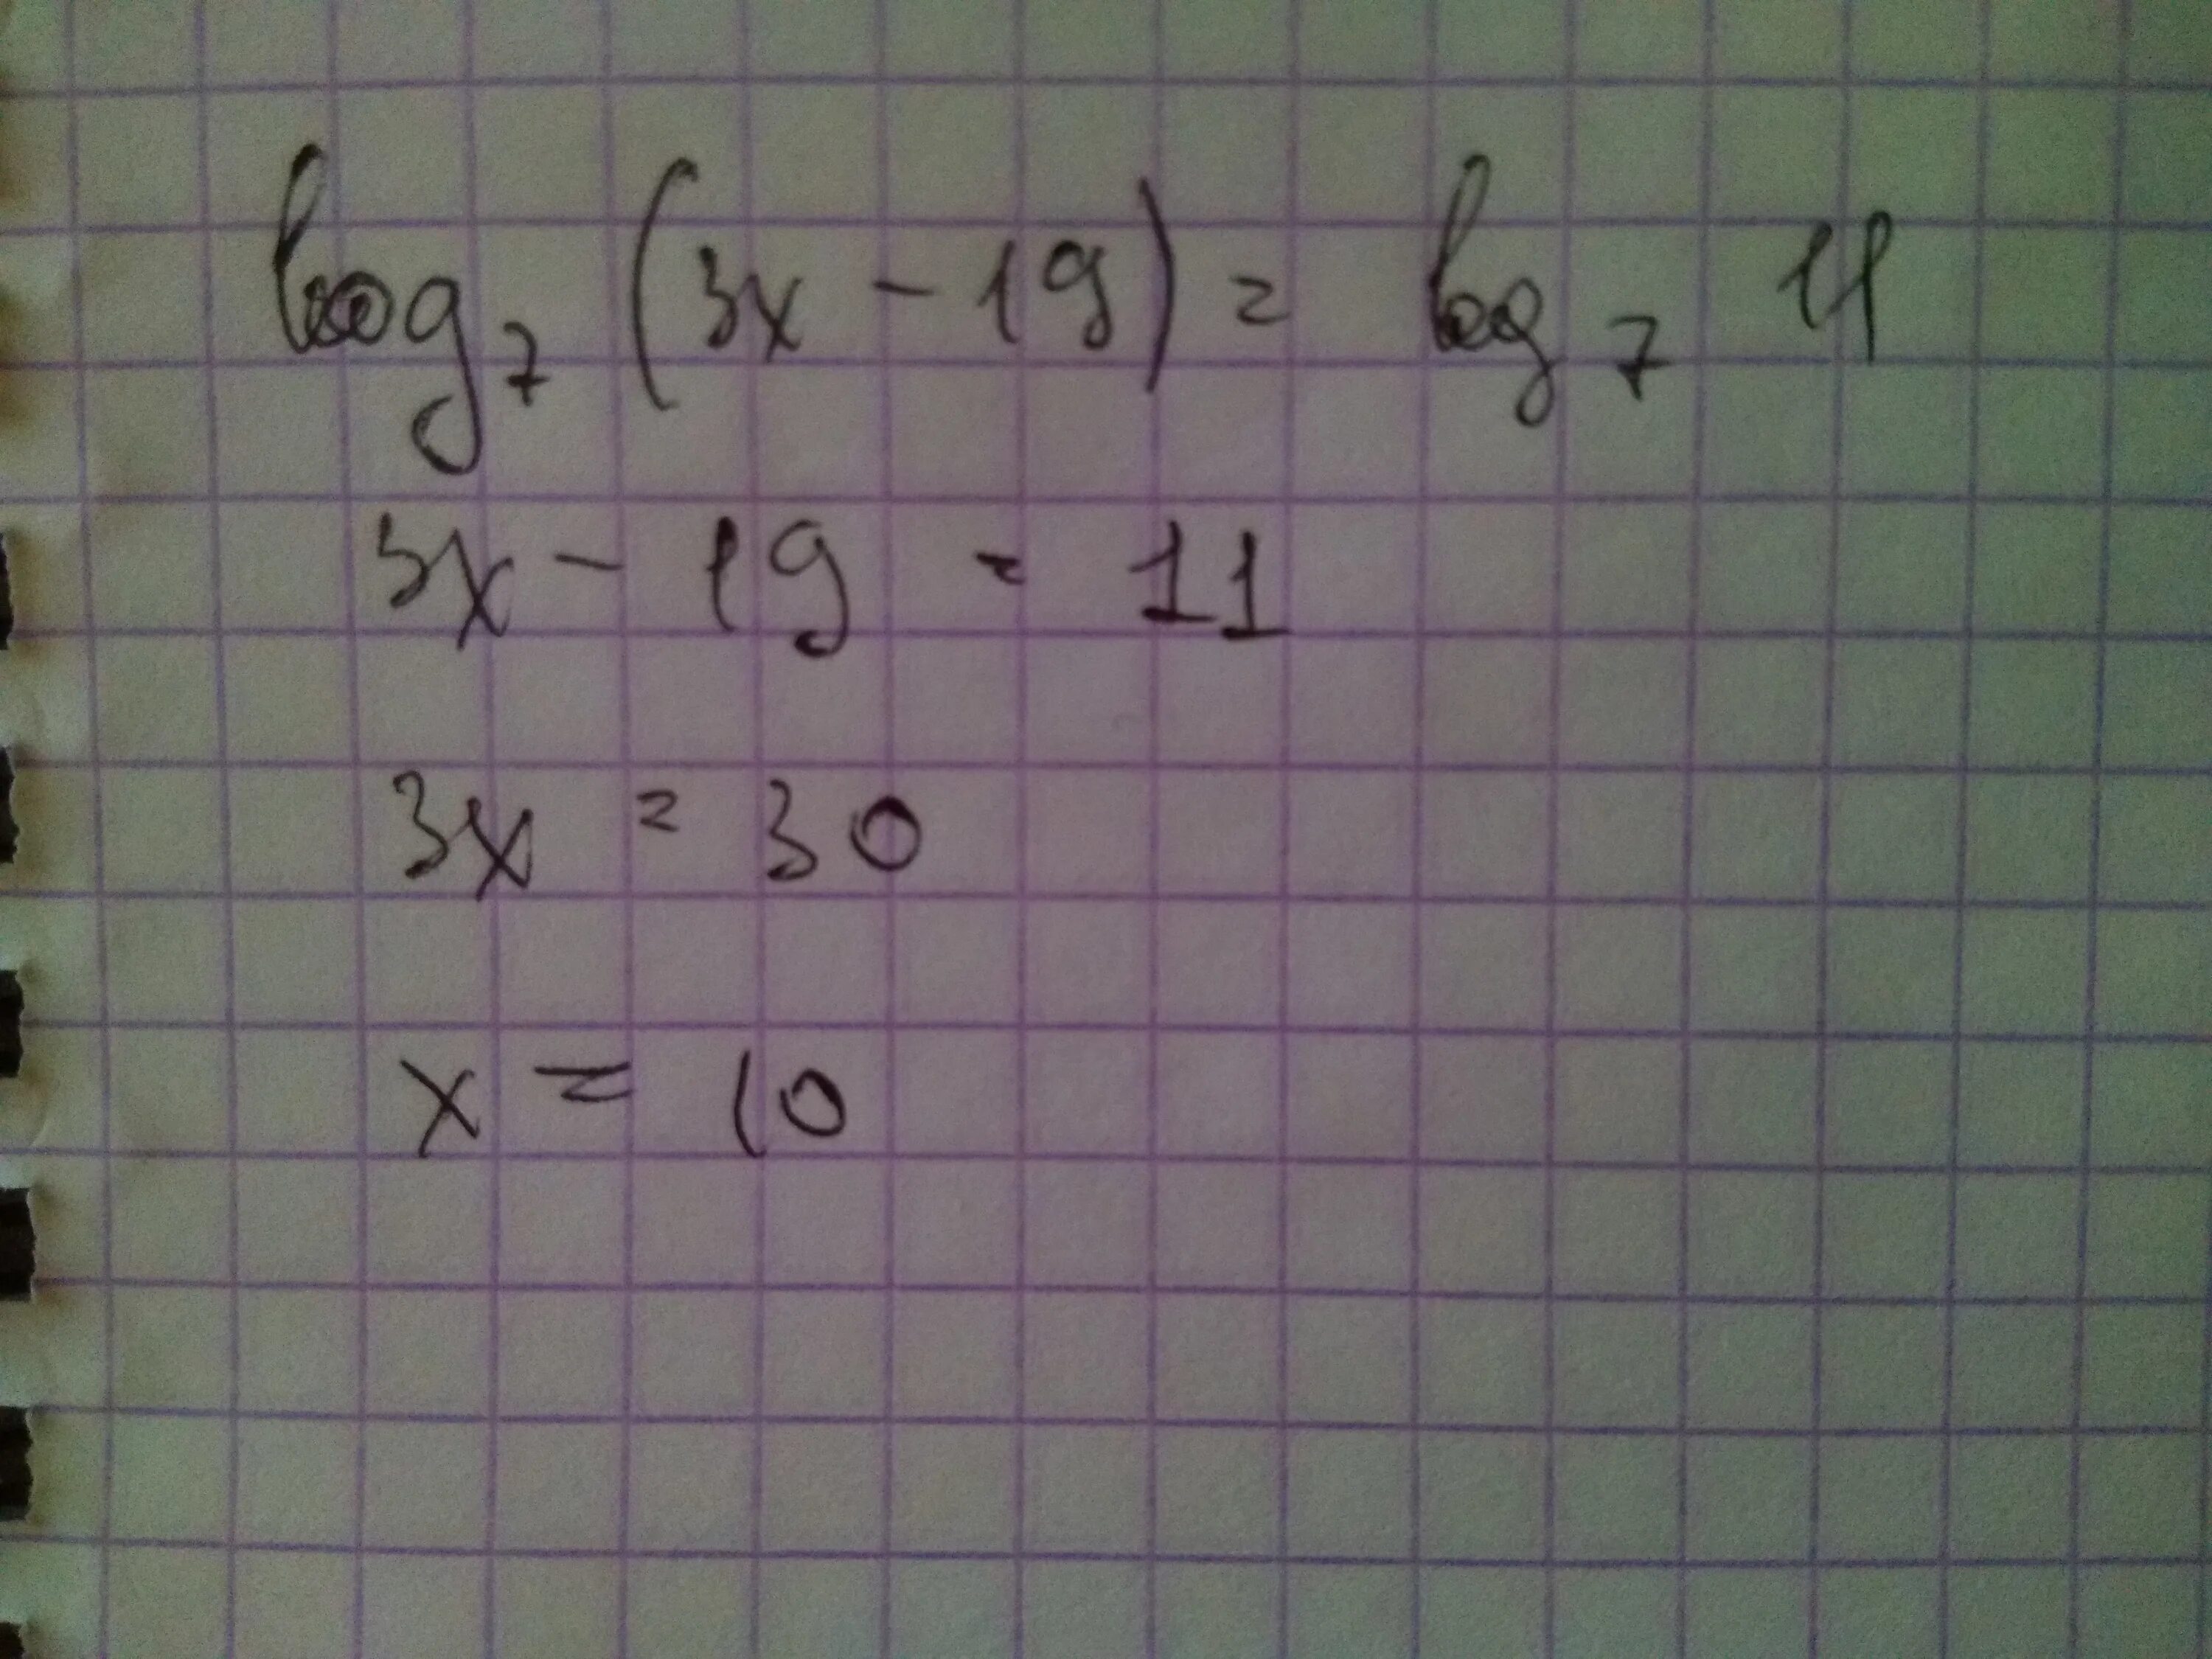 log₇ (3x - 19) = log₇ 11
3x - 19 = 11
3x = 30
x = 10